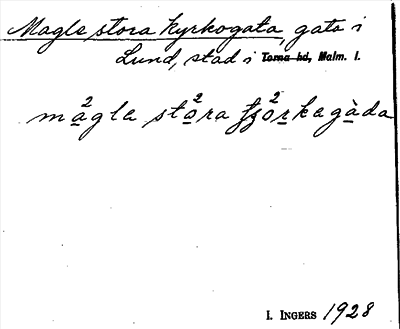 Magle stora kyrkogata, gata i
Lund, stad i Torna hd, Malm. l.
magla stora tjorkagàda
I. INGERS 1928